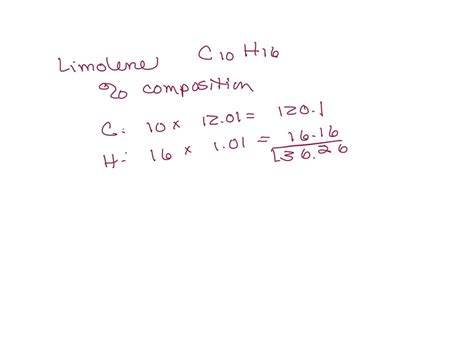 Limolene C10 H16
% composition
C: 10 × 12.01 = 120.1
H: 16 × 1.01 = 16.16
136.26